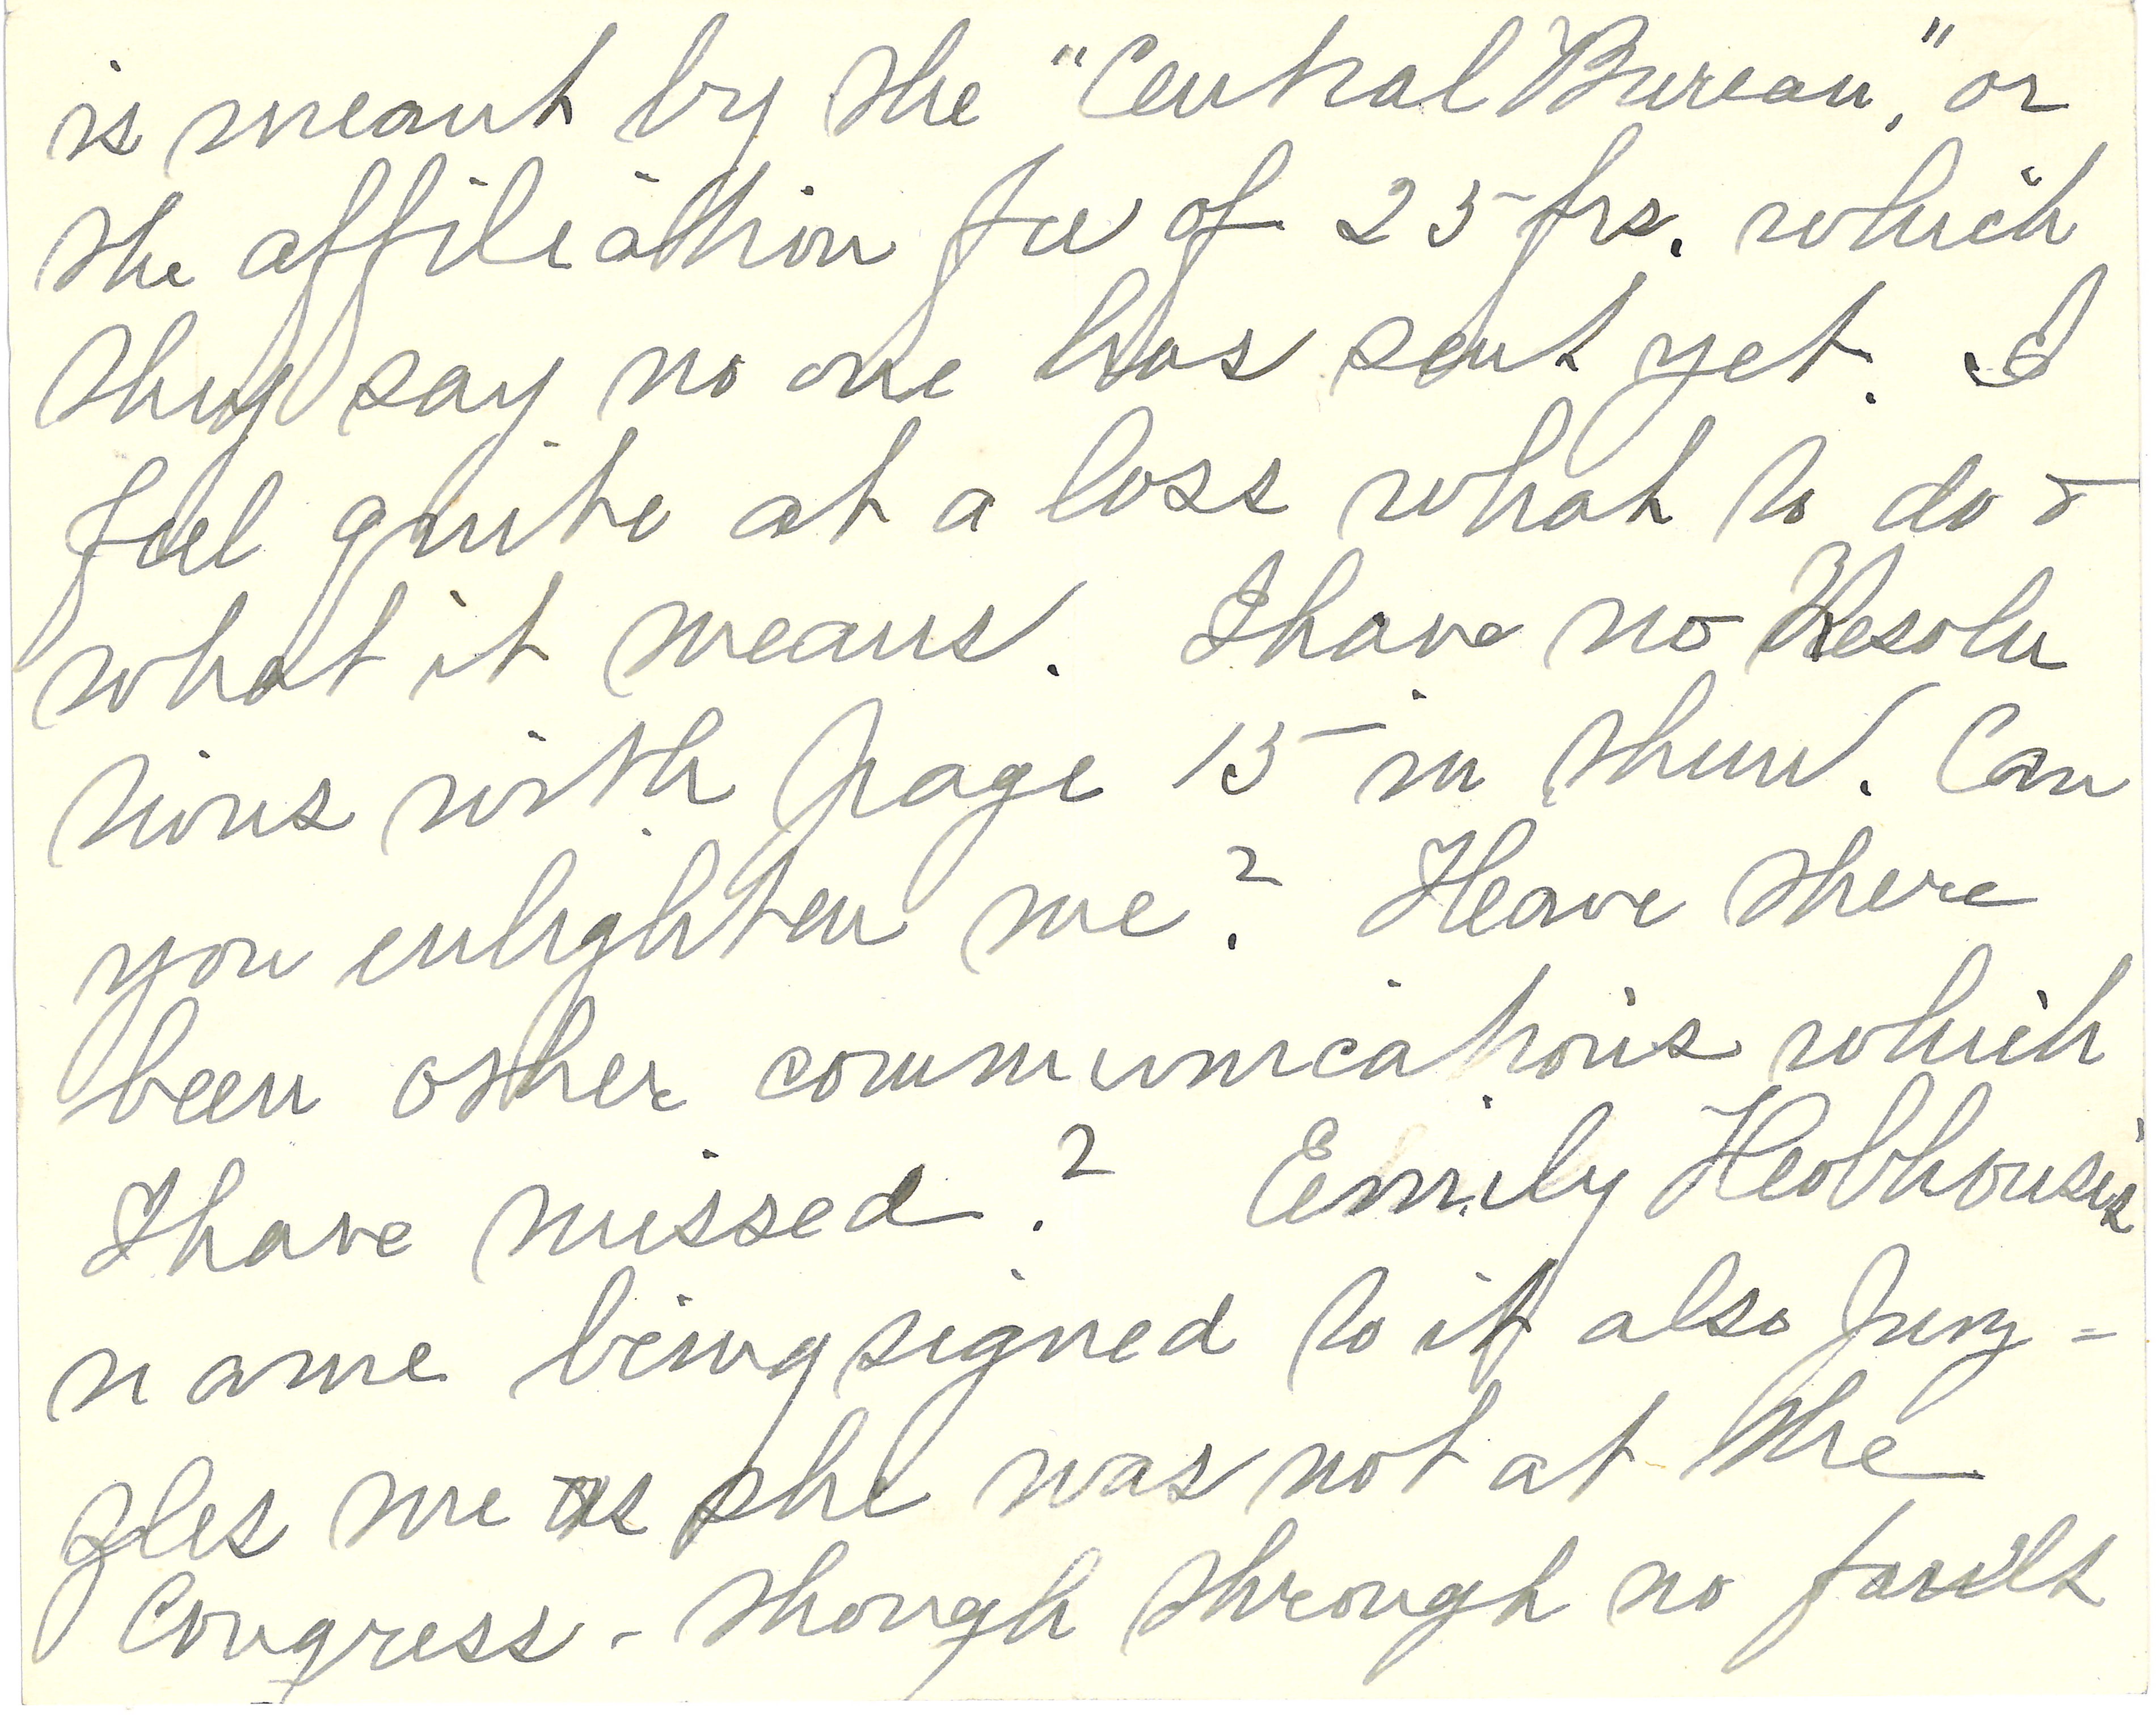 is meant by the "Central Bureau," or
the affiliation fee of 25 frs. which
they say no one has sent yet. I
feel quite at a loss what to do &
what it means. I have no Resolu
tions with page 15 in them. Can
you enlighten me? Have there
been other communications which
I have missed? Emily Hobhouse's
name being signed to it also puz=
zles me as she was not at the
Congress - though through no fault